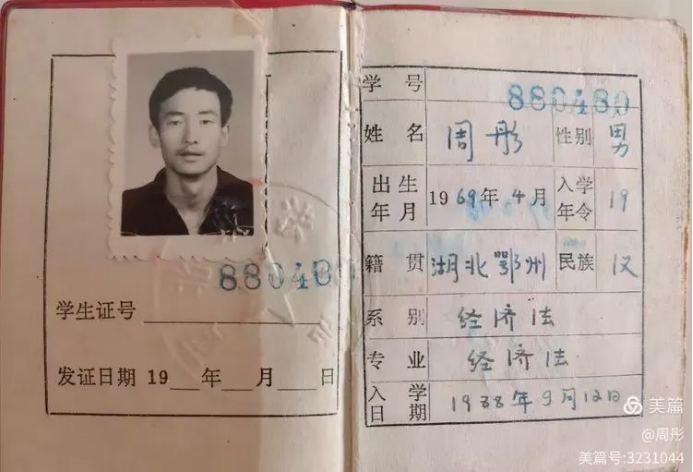 880480
学生证号
发证日期 19 年 月 日
学号 880480
姓名 周彤 性别 男
出生年月 1969年4月 入学年令 19
籍贯 湖北鄂州 民族 汉
系别 经济法
专业 经济法
入学日期 1988年9月12日
美篇
@周彤
美篇号:3231044